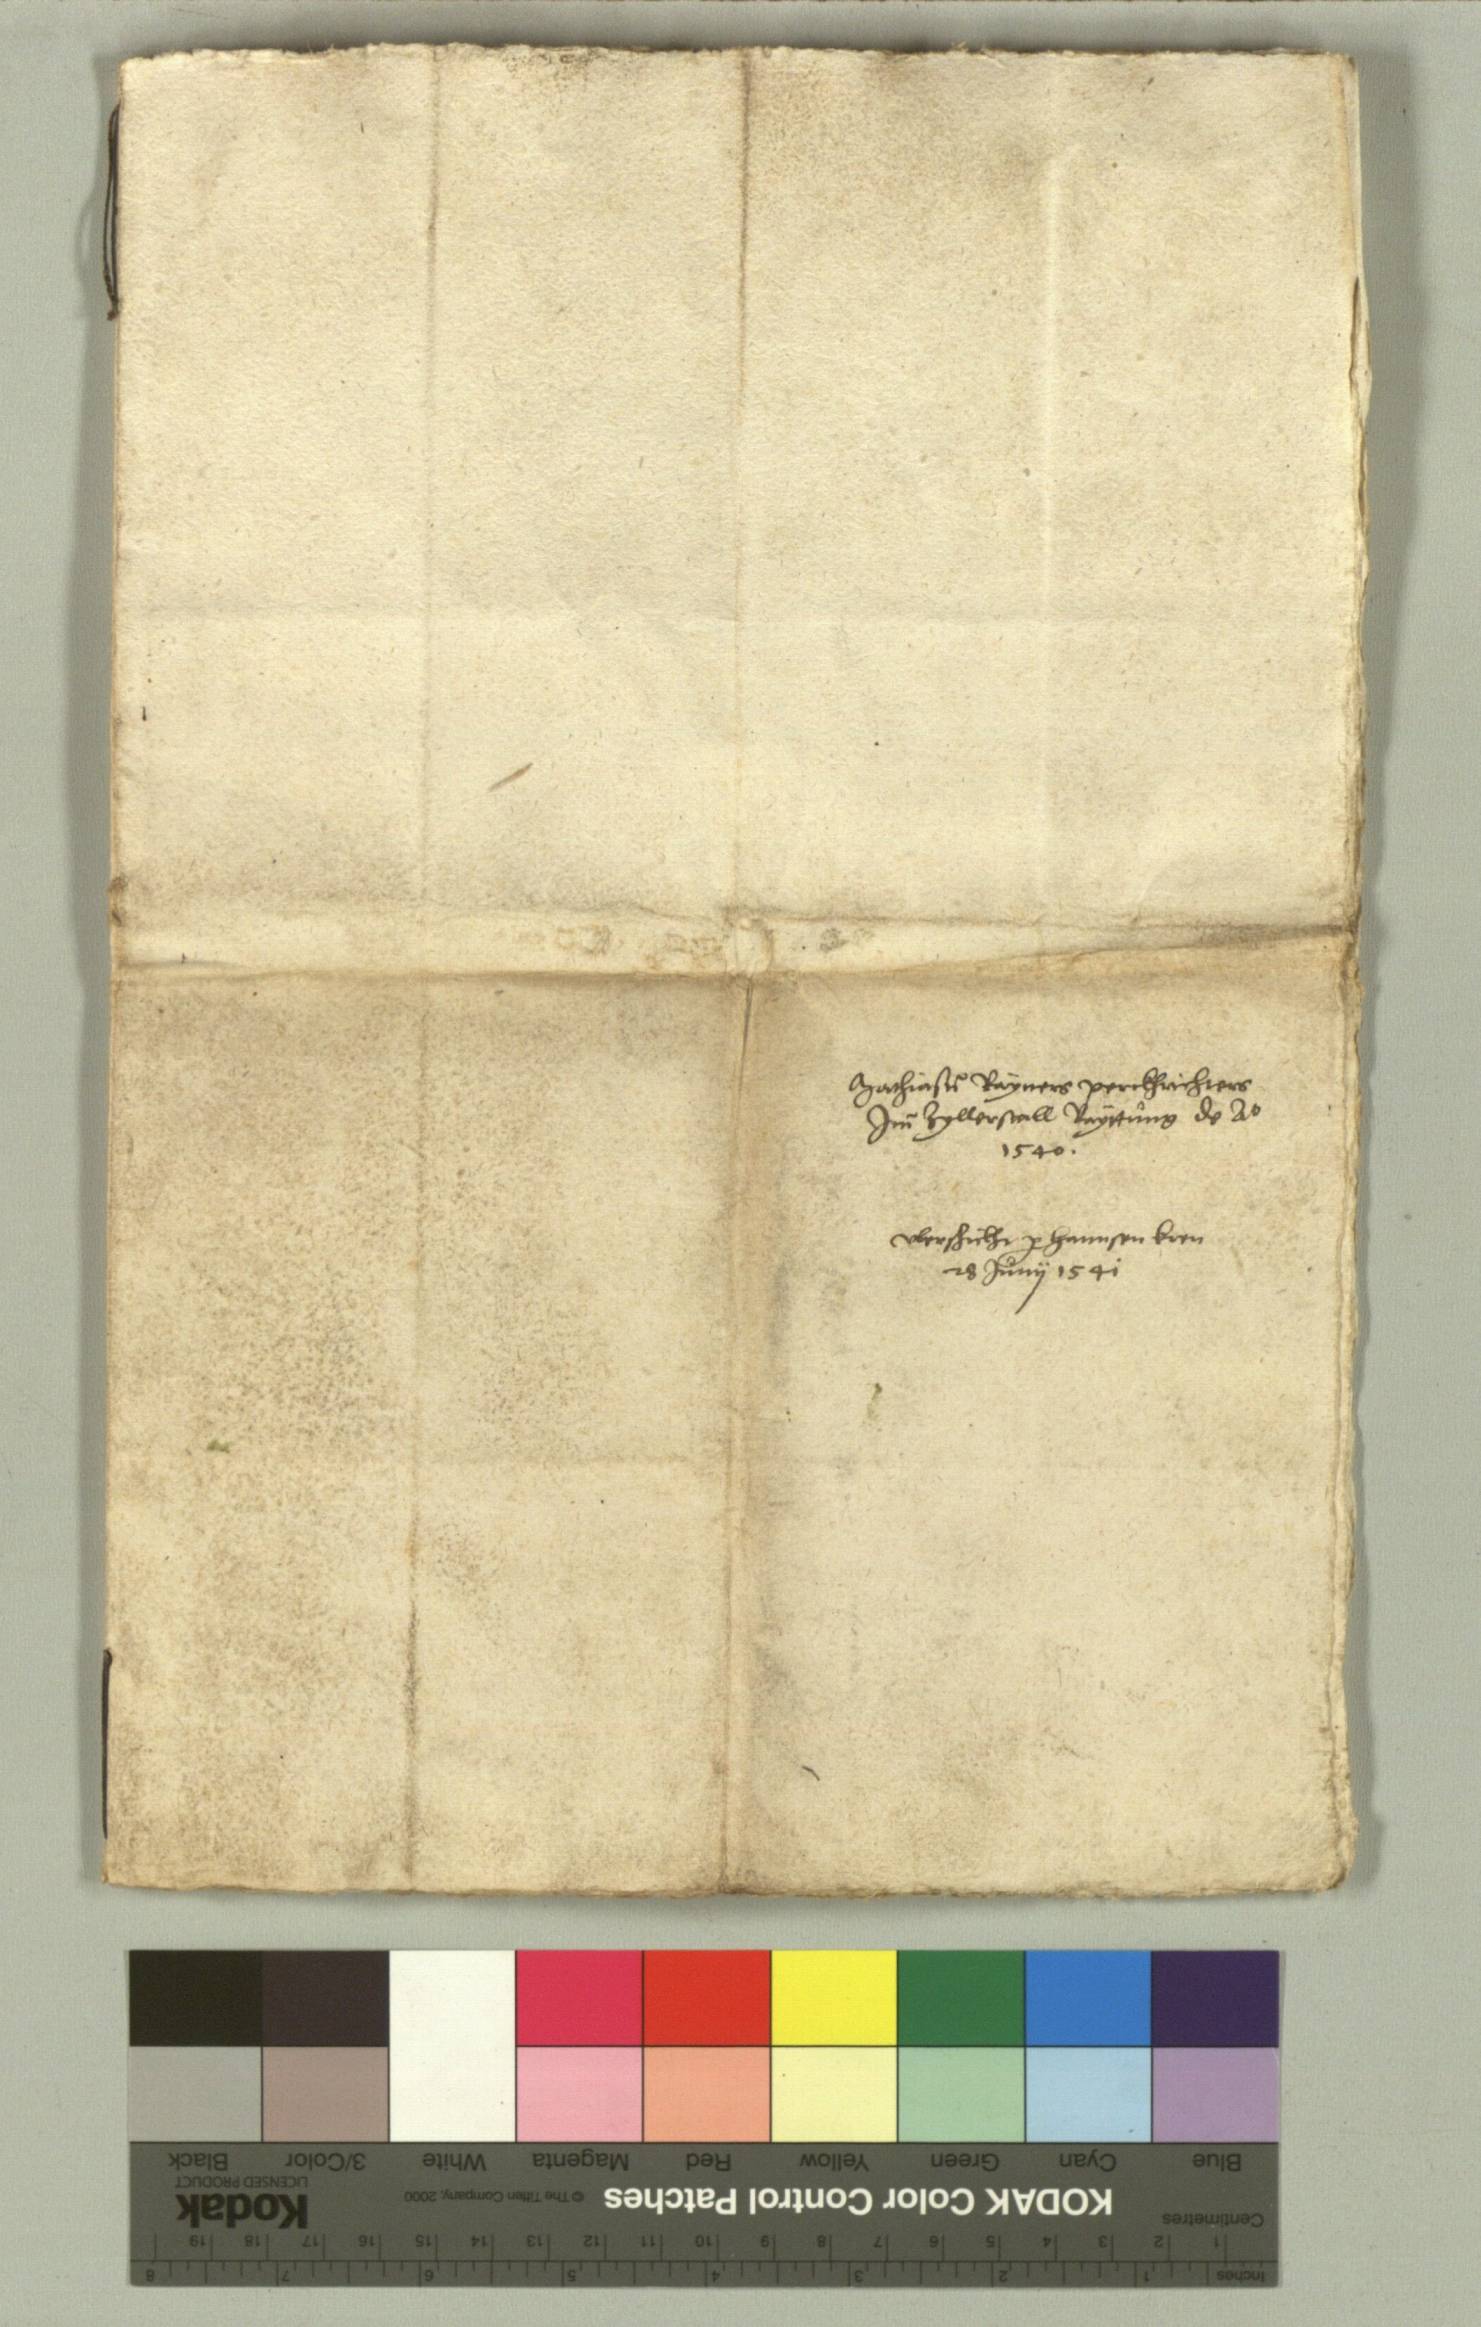 Mathiasn̄ Rayners perckhrichters
Im̄ Zyllerstall Rayttung de Ao
1540.
vbersicht p hannsen kren
28 Junÿ 1541
Black
3/Color
White
Magenta
Red
Yellow
Green
Cyan
Blue
LICENSED PRODUCT
Kodak
© The Tiffen Company, 2000
KODAK Color Control Patches
Centimetres
19 18 17 16 15 14 13 12 11 10 9 8 7 6 5 4 3 2 1
8 7 6 5 4 3 2 1 Inches